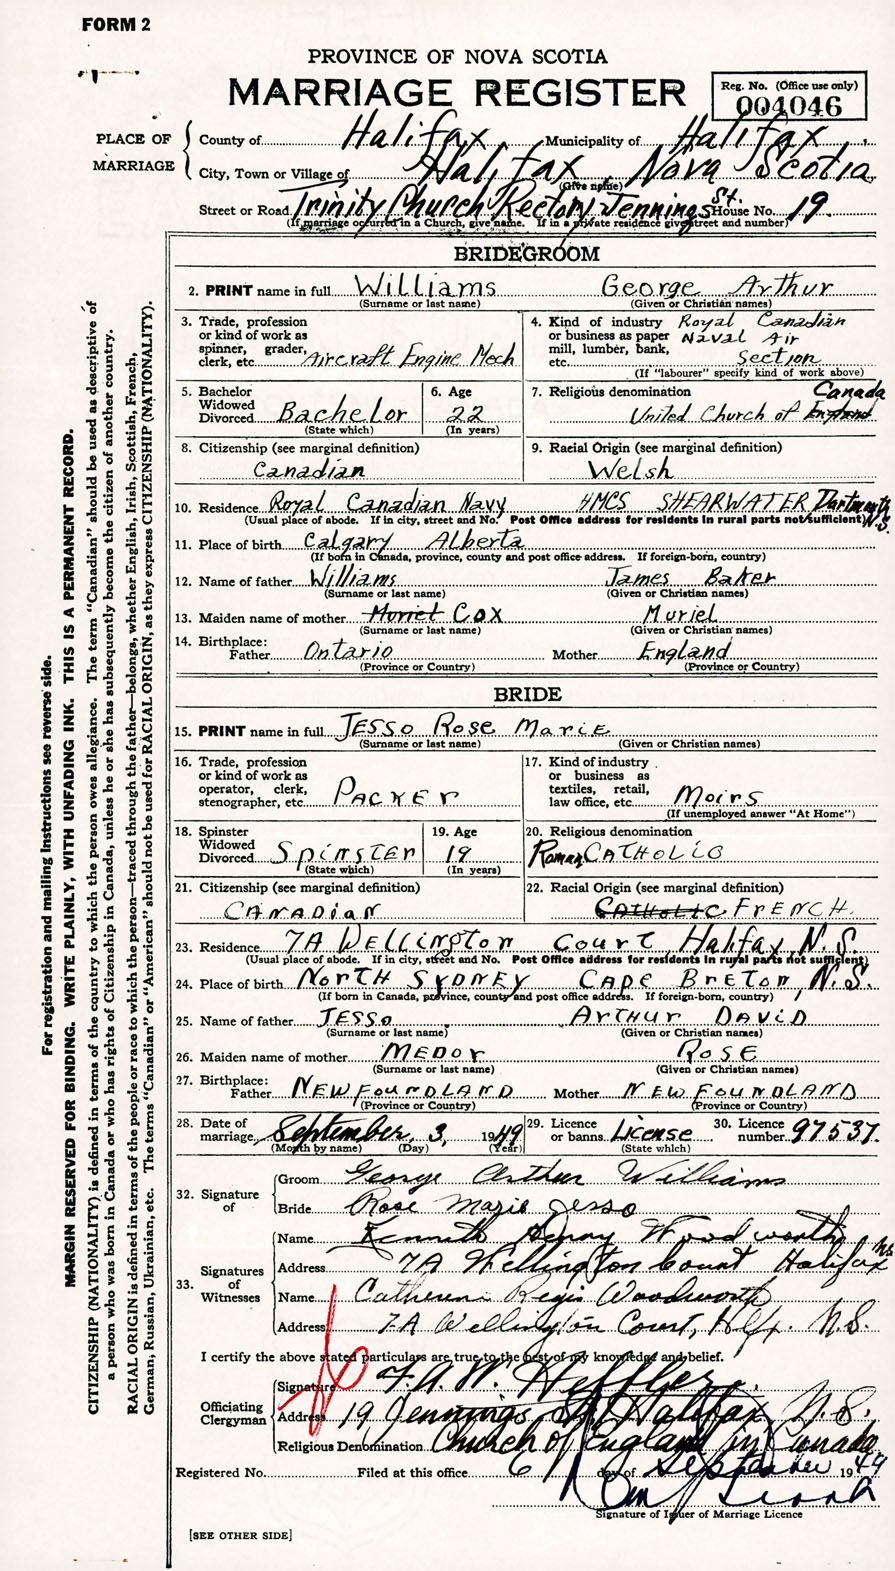 FORM 2
PROVINCE OF NOVA SCOTIA
MARRIAGE REGISTER
Reg. No. (Office use only)
004046
PLACE OF MARRIAGE
County of Halifax Municipality of Halifax
City, Town or Village of Halifax, Nova Scotia
(Give name)
Street or Road Trinity Church Rectory Jennings St. House No. 19.
(If marriage occurred in a Church, give name. If in a private residence give street and number)
BRIDEGROOM
2. PRINT name in full Williams George Arthur
(Surname or last name) (Given or Christian names)
3. Trade, profession or kind of work as spinner, grader, clerk, etc. Aircraft Engine Mech
4. Kind of industry or business as paper mill, lumber, bank, etc. Royal Canadian Naval Air Section
(If "labourer" specify kind of work above)
5. Bachelor Widowed Divorced Bachelor
(State which)
6. Age 22
(In years)
7. Religious denomination United Church of England Canada
8. Citizenship (see marginal definition)
Canadian
9. Racial Origin (see marginal definition)
Welsh
10. Residence Royal Canadian Navy HMCS SHEARWATER Dartmouth N.S.
(Usual place of abode. If in city, street and No. Post Office address for residents in rural parts not sufficient)
11. Place of birth Calgary Alberta
(If born in Canada, province, county and post office address. If foreign-born, country)
12. Name of father Williams James Baker
(Surname or last name) (Given or Christian names)
13. Maiden name of mother Muriel Cox Muriel
(Surname or last name) (Given or Christian names)
14. Birthplace:
Father Ontario Mother England
(Province or Country) (Province or Country)
BRIDE
15. PRINT name in full JESSO Rose Marie
(Surname or last name) (Given or Christian names)
16. Trade, profession or kind of work as operator, clerk, stenographer, etc. PACKER
17. Kind of industry or business as textiles, retail, law office, etc. Moirs
(If unemployed answer "At Home")
18. Spinster Widowed Divorced SPINSTER
(State which)
19. Age 19
(In years)
20. Religious denomination
Roman CATHOLIC
21. Citizenship (see marginal definition)
CANADIAN
22. Racial Origin (see marginal definition)
CATHOLIC FRENCH
23. Residence 7A WELLINGTON COURT, Halifax, N.S.
(Usual place of abode. If in city, street and No. Post Office address for residents in rural parts not sufficient)
24. Place of birth NORTH SYDNEY CAPE BRETON, N.S.
(If born in Canada, province, county and post office address. If foreign-born, country)
25. Name of father JESSO ARTHUR DAVID
(Surname or last name) (Given or Christian names)
26. Maiden name of mother MEDOR ROSE
(Surname or last name) (Given or Christian names)
27. Birthplace:
Father NEWFOUNDLAND Mother NEWFOUNDLAND
(Province or Country) (Province or Country)
28. Date of marriage September 3, 1949
(Month by name) (Day) (Year)
29. Licence or banns License
(State which)
30. Licence number 97537.
32. Signature of
Groom George Arthur Williams
Bride Rose Marie Jesso
33. Signatures of Witnesses
Name Kenneth Henry Woodworth
Address 7A Wellington Court Halifax NS
Name Catherine Regis Woodworth
Address 7A Wellington Court, Hlfx. N.S.
I certify the above stated particulars are true to the best of my knowledge and belief.
Officiating Clergyman
Signature F. A. W. Heffler
Address 19 Jennings St. Halifax, N.S.
Religious Denomination Church of England in Canada
Registered No. Filed at this office 6 day of September 1949
Signature of Issuer of Marriage Licence
[SEE OTHER SIDE]
For registration and mailing instructions see reverse side.
MARGIN RESERVED FOR BINDING. WRITE PLAINLY, WITH UNFADING INK. THIS IS A PERMANENT RECORD.
CITIZENSHIP (NATIONALITY) is defined in terms of the country to which the person owes allegiance. The term "Canadian" should be used as descriptive of
a person who was born in Canada or who has rights of Citizenship in Canada, unless he or she has subsequently become the citizen of another country.
RACIAL ORIGIN is defined in terms of the people or race to which the person—traced through the father—belongs, whether English, Irish, Scottish, French,
German, Russian, Ukrainian, etc. The terms "Canadian" or "American" should not be used for RACIAL ORIGIN, as they express CITIZENSHIP (NATIONALITY).